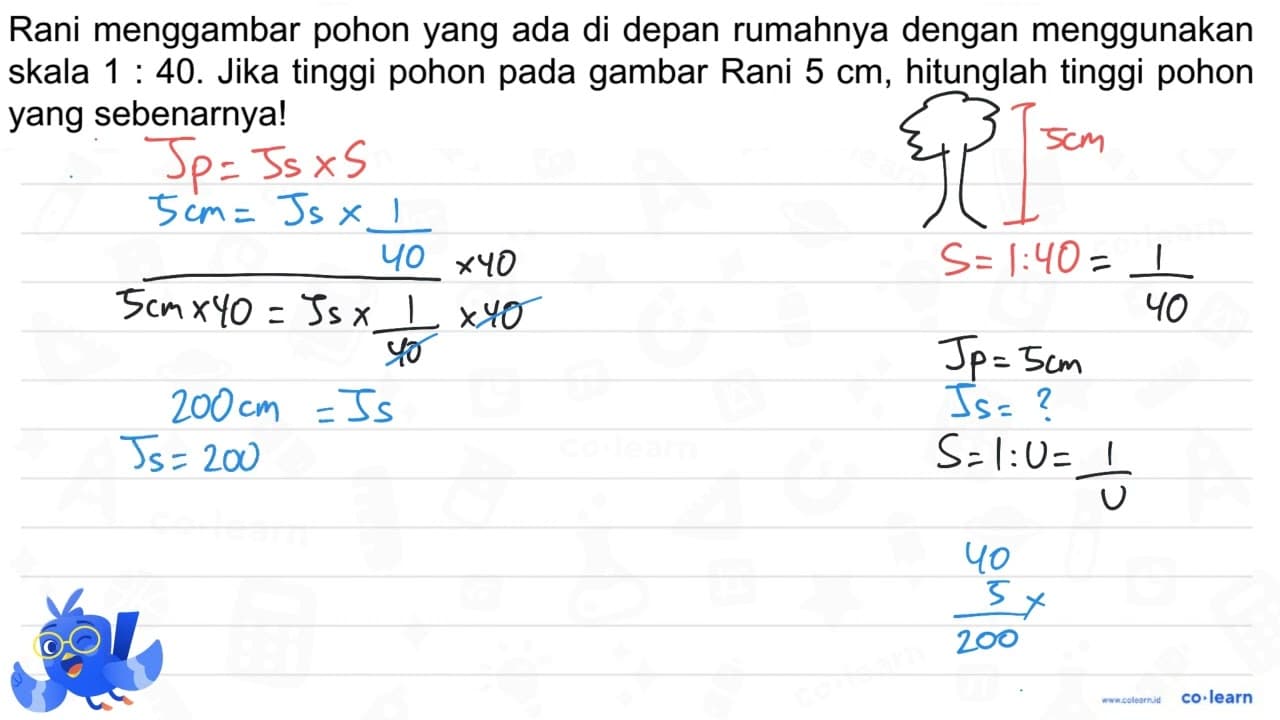 Rani menggambar pohon yang ada di depan rumahnya dengan menggunakan
skala 1 : 40. Jika tinggi pohon pada gambar Rani 5 cm, hitunglah tinggi pohon
yang sebenarnya!
Jp = Js x S
5 cm = Js x 1/40 x 40
5 cm x 40 = Js x 1/40 x 40
200 cm = Js
Js = 200
5 cm
S = 1 : 40 = 1/40
Jp = 5 cm
Js = ?
S = 1 : U = 1/U
40
5 x
200
www.colearn.id co·learn